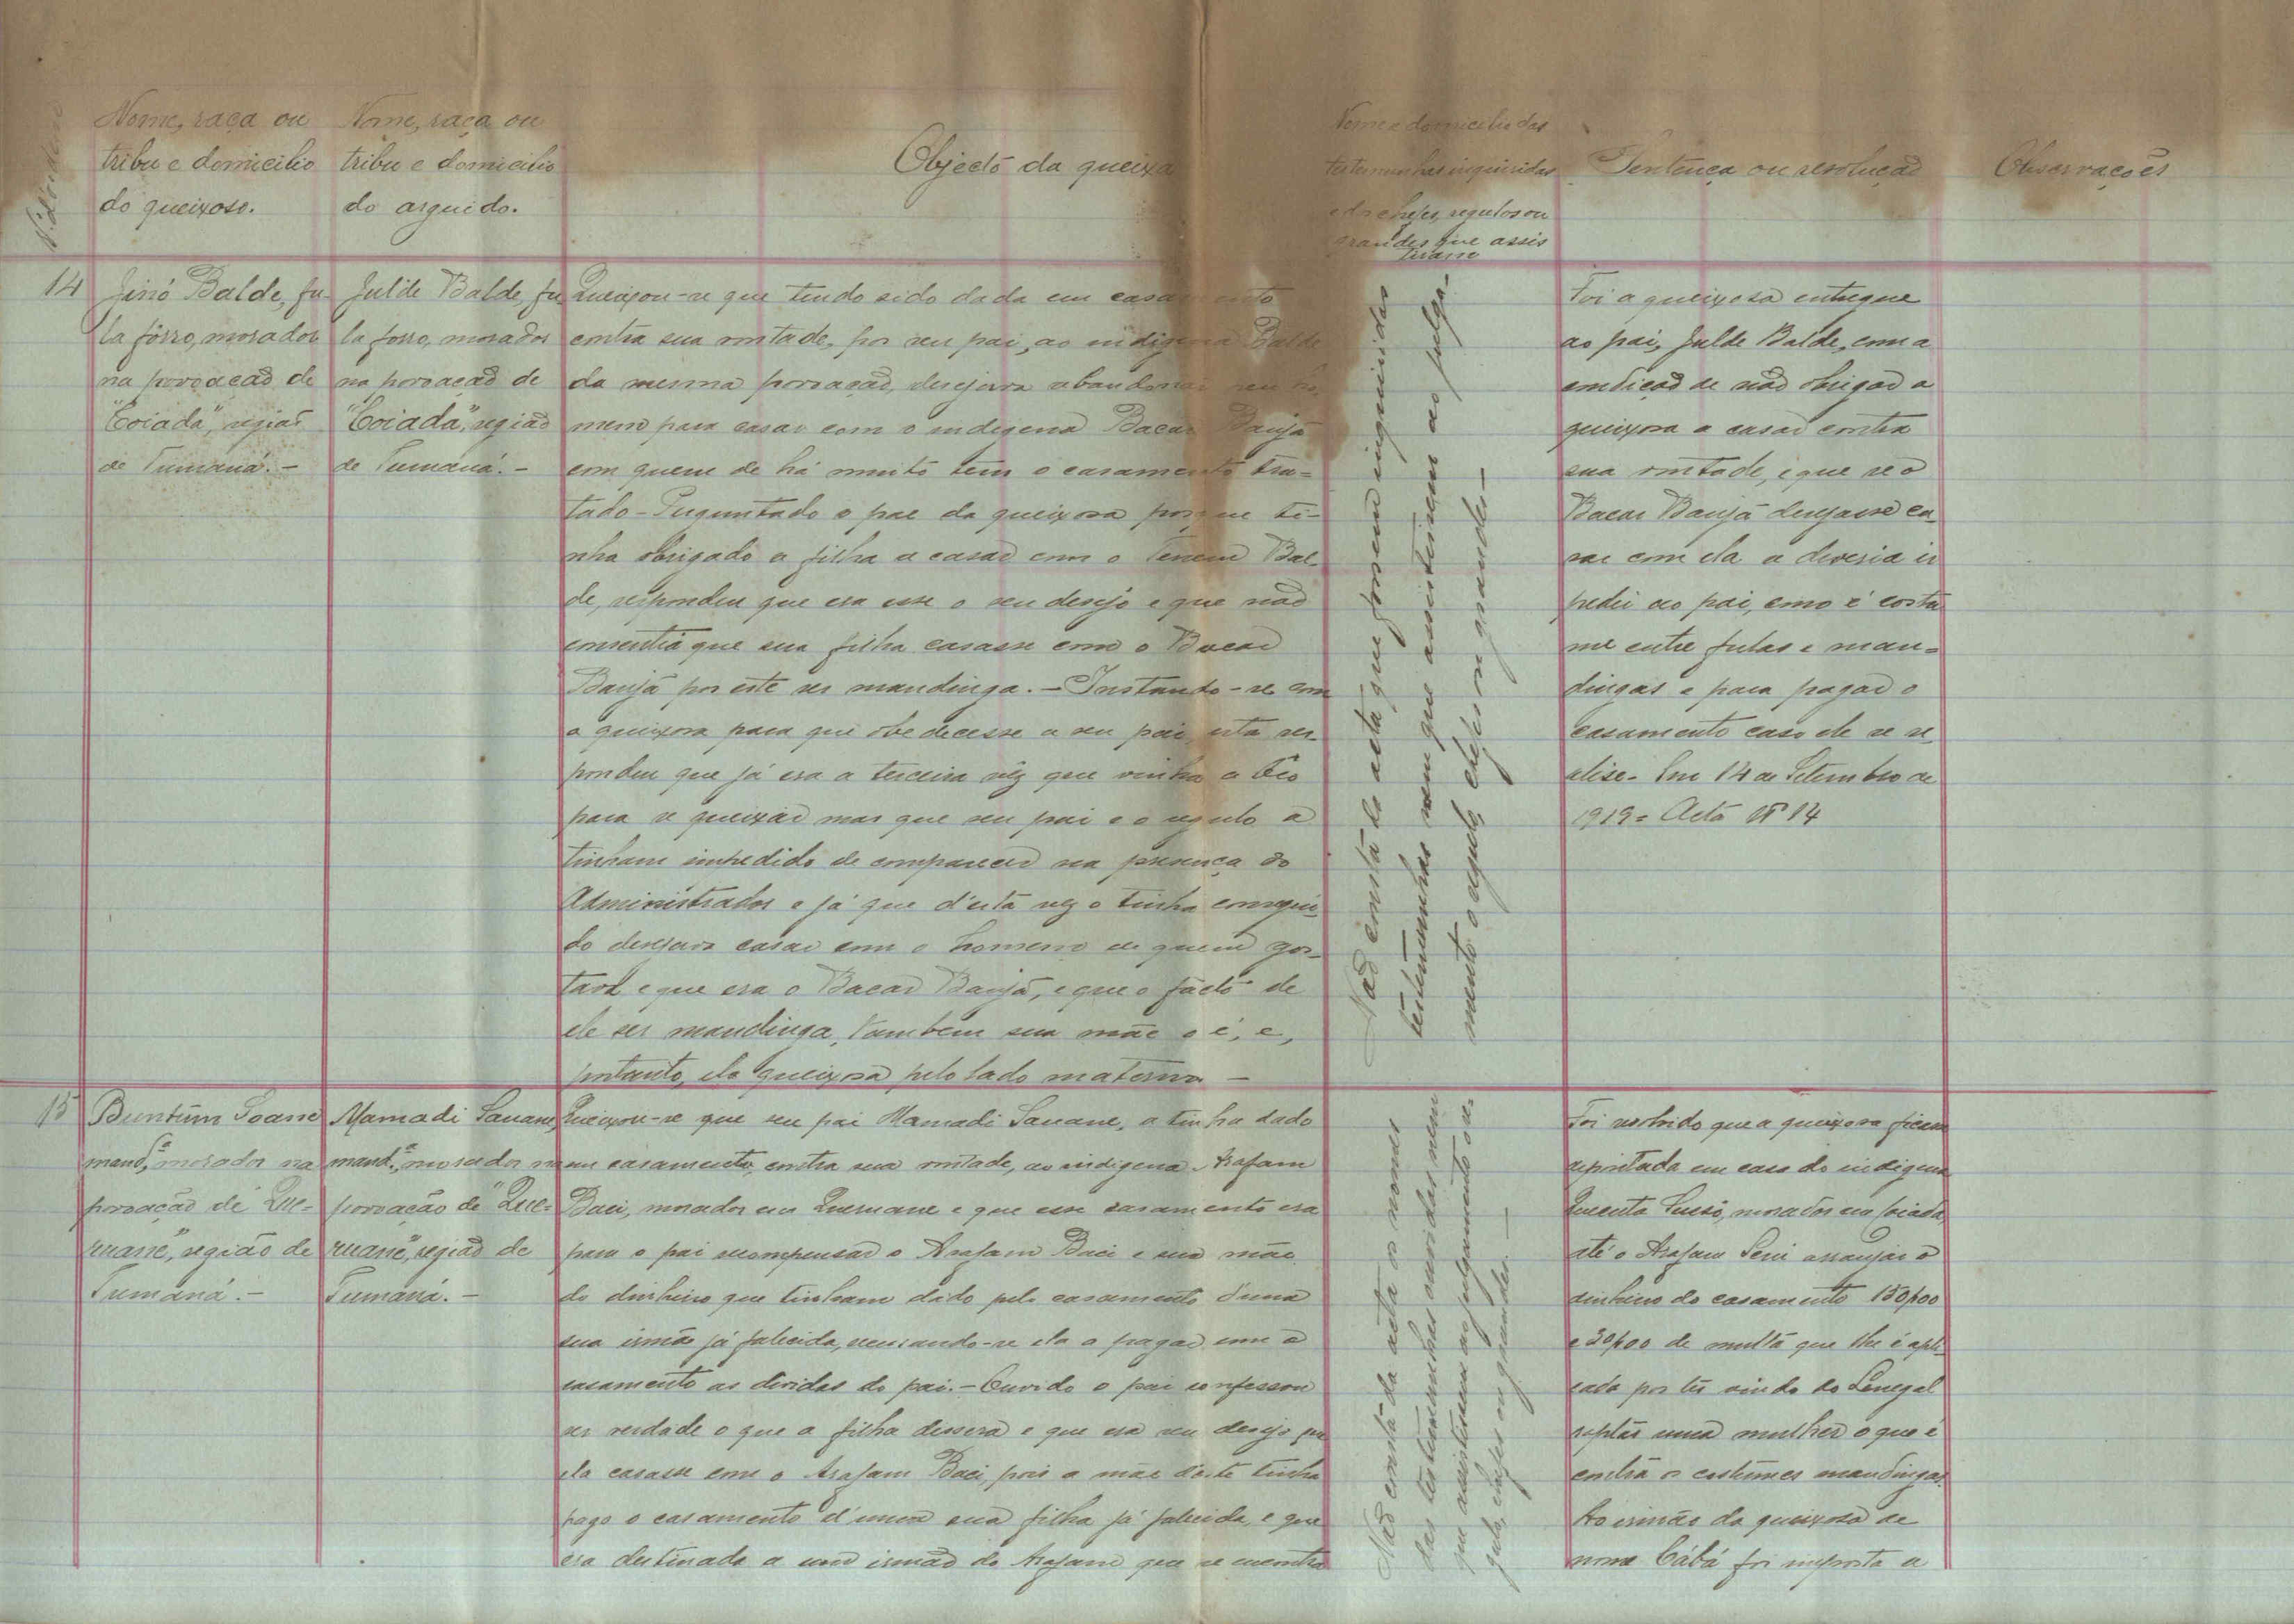 Nº d'ordem
Nome, raça ou
tribu e domicilio
do queixoso.
Nome, raça ou
tribu e domicilio
do arguido.
Objecto da queixa
Nome e domicilio das
testemunhas inquiridas
e dos chefes, regulos ou
grandes que assis
tiram
Sentença ou resolução
Observações
14
Jinó Balde, fu-
la fôrro, morador
na povoação de
"Coiada", região
de Tumaná. -
Julde Balde, fu
la forro, morador
na povoação de
"Coiada", região
de Tumaná. -
Queixou-se que tendo sido dada em casamento
contra sua vontade, por seu pai, ao indigena Balde
da mesma povoação, desejava abandonar seu ho-
mem para casar com o indigena Bacar Banjã
com quem de há muito tem o casamento tra-
tado - Perguntado o pae da queixosa porque ti-
nha obrigado a filha a casar com o Tenem Bal-
de, respondeu que era esse o seu desejo e que não
consentia que sua filha casasse com o Bacar
Banjã por este ser mandinga. - Instando-se com
a queixosa para que obedecesse a seu pai esta res-
pondeu que já era a terceira vêz que vinha a
para se queixar mas que seu pai e o regulo a
tinham impedido de comparecer na presença do
Administrador e já que d'esta vez o tinha consegui-
do desejava casar com o homem de quem gos-
tava e que era o Bacar Banjã, e que o facto de
ele ser mandinga, tambem sua mãe o é, e,
portanto, ela queixosa pelo lado materno -
Não consta da acta que fossem inquiridas
testemunhas nem que assistissem ao julga-
mento o regulo, chefes ou grandes -
Foi a queixosa entregue
ao pai, Julde Balde, com a
condição de não obrigar a
queixosa a casar contra
sua vontade, e que se o
Bacar Banjã desejasse ca-
sar com ela a deveria ir
pedir ao pai, como é costu
me entre fulas e man-
dingas e para pagar o
casamento caso ele se re-
alise. Em 14 de Setembro de
1919 = Acta nº 14
15
Buntum Soane
mand.ª, morador na
povoação de "Que-
ruane", região de
Tumaná. -
Mamadi Sauane,
mand.ª, morador na
povoação de "Que-
ruane", região de
Tumaná. -
Queixou-se que seu pai Mamadi Sauane, a tinha dado
em casamento, contra sua vontade, ao indigena Arafam
Baci, morador em Queruane e que esse casamento era
para o pai recompensar o Arafam Baci e sua mãe
do dinheiro que tinham dado pelo casamento d'uma
sua irmã já falecida, recusando-se ela a pagar com o
casamento as dividas do pai. - Ouvido o pai confessou
ser verdade o que a filha dissera e que era seu desejo que
ela casasse com o Arafam Baci, pois a mãe d'este tinha
pago o casamento d'uma sua filha já falecida e que
era destinada a um irmão do Arafam que se encontra
Não consta da acta os nomes
das testemunhas ouvidas nem
que assistissem ao julgamento o re-
gulo, chefes ou grandes. -
Foi resolvido que a queixosa ficasse
depositada em casa do indigena
Queenta Suesó, morador em Coiada,
até o Arafam Seni arranjar o
dinheiro do casamento 150$00
e 30$00 de multa que lhe é apli-
cada por ter vindo do Senegal
raptar uma mulher o que é
contra os costumes mandingas.
Ao irmão da queixosa de
nome Cábá foi imposta a